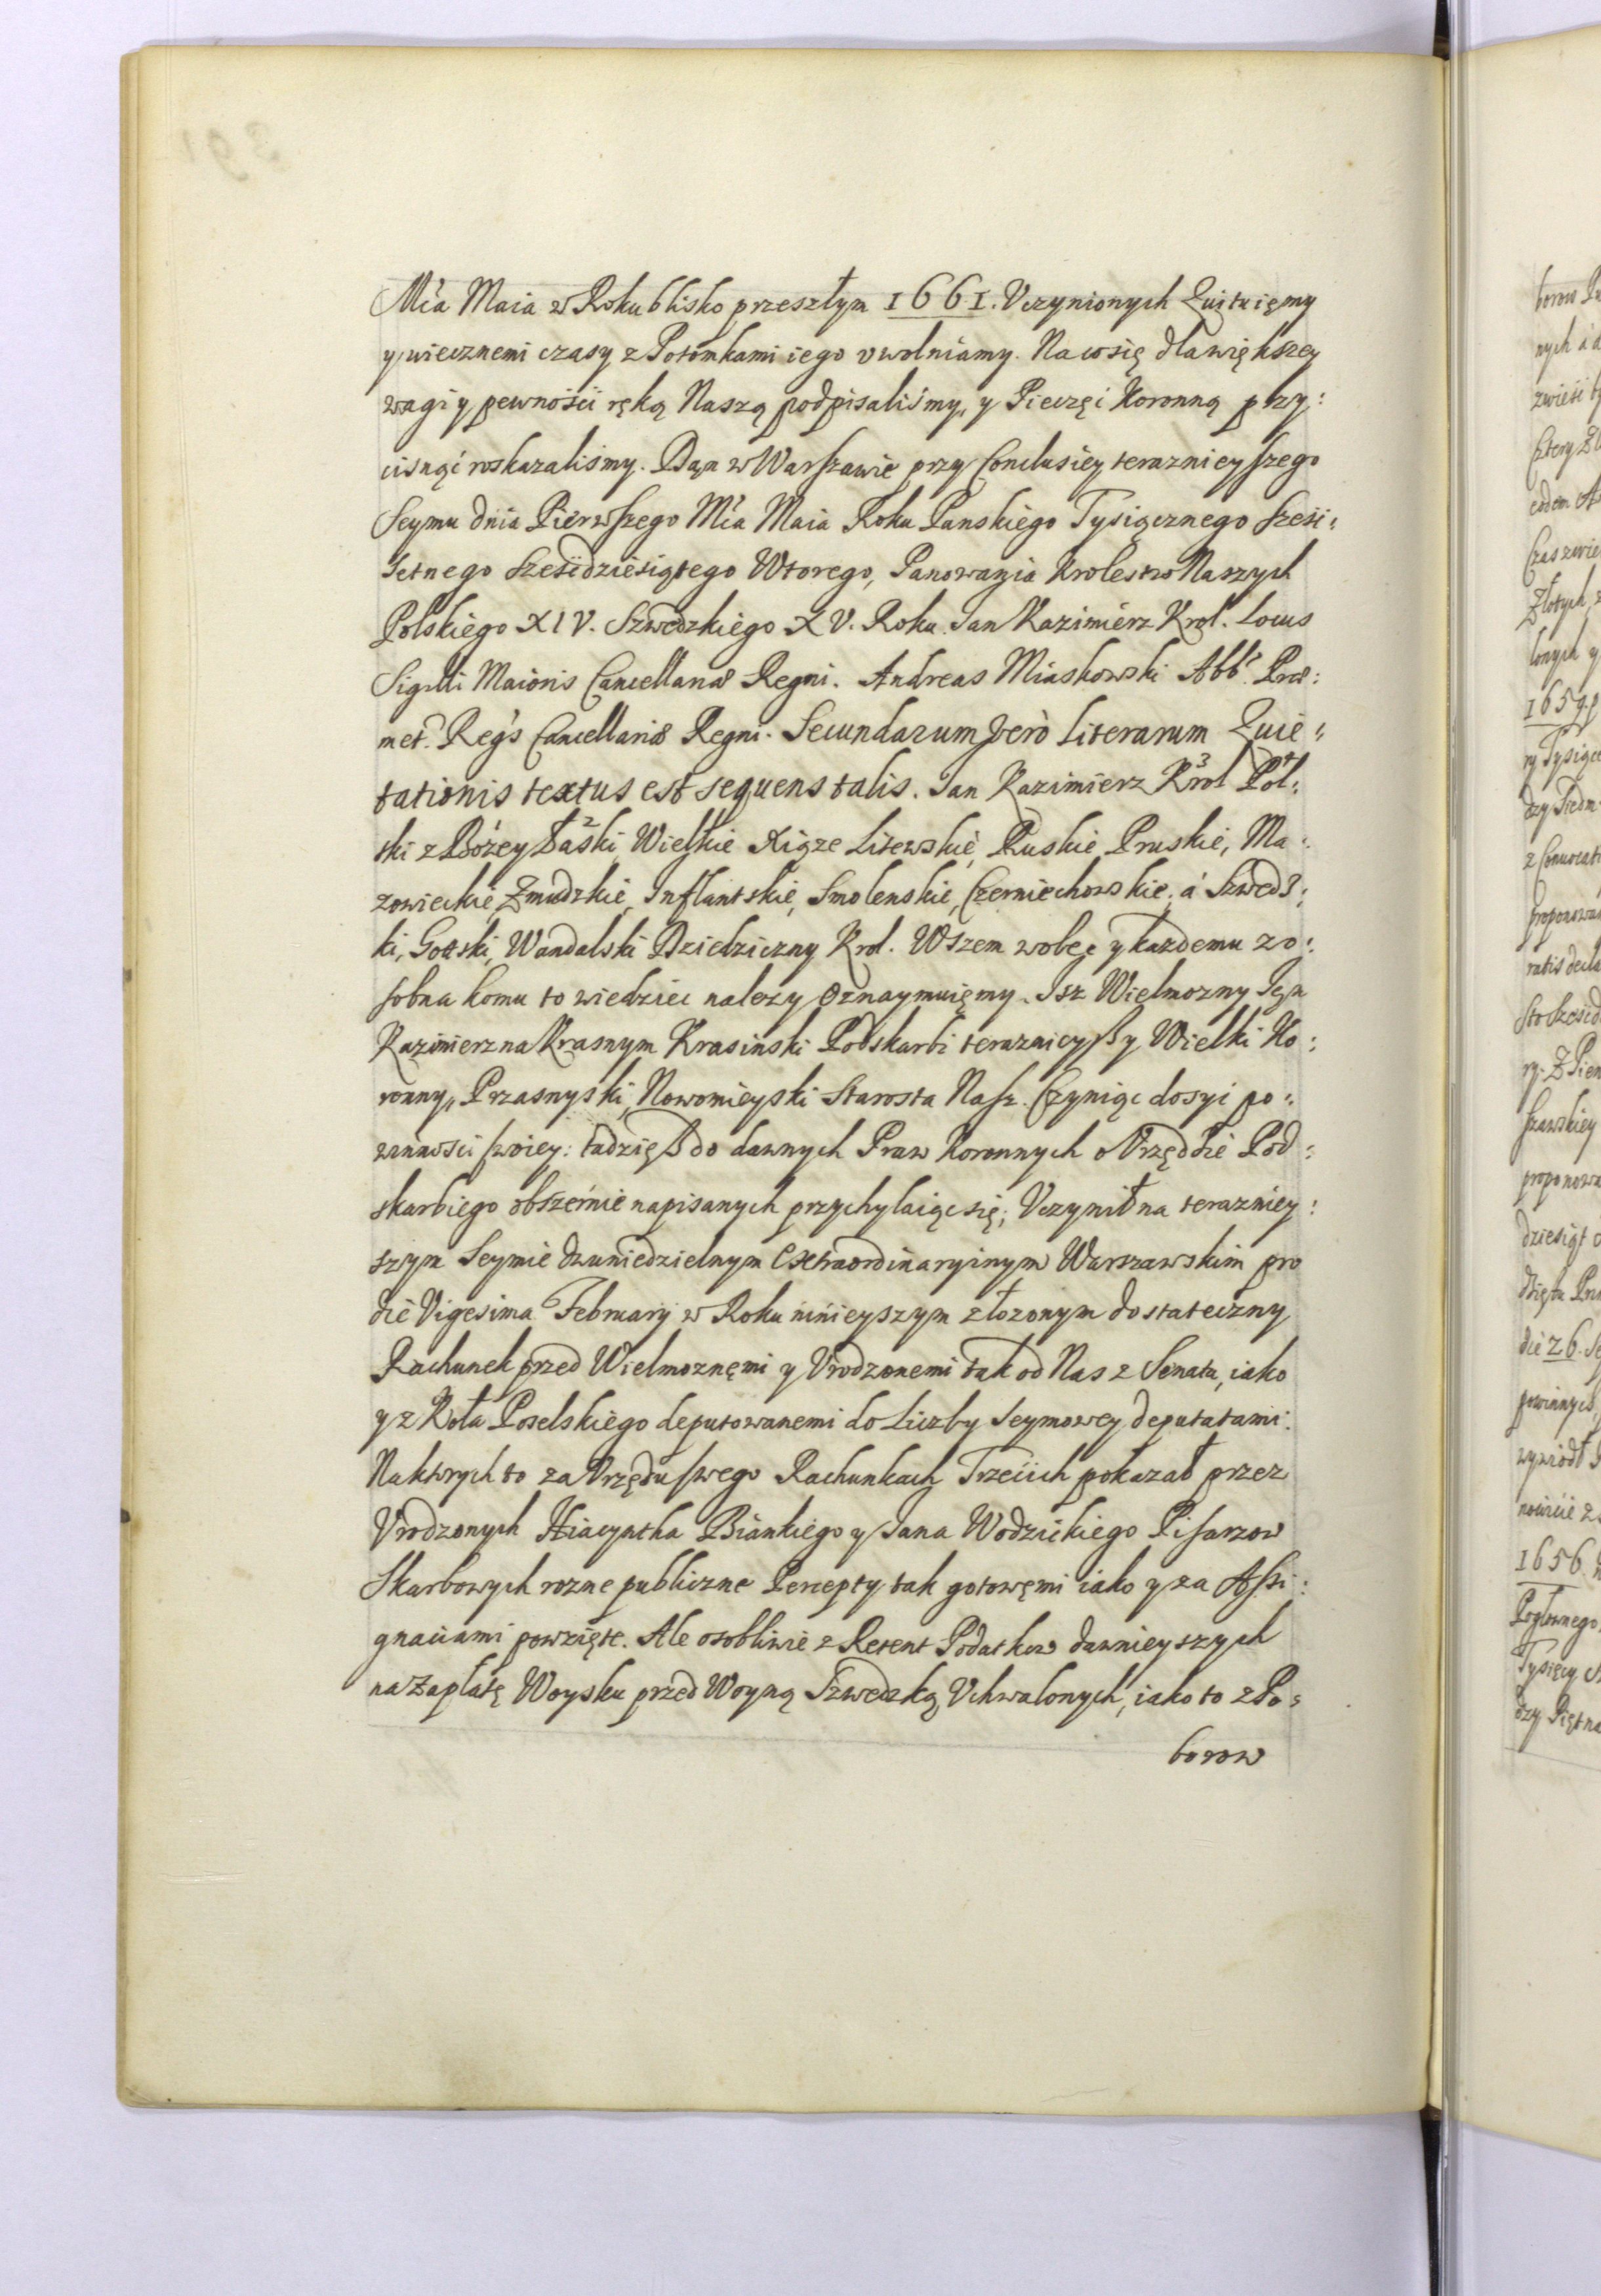 Mĉa Maia w Roku blisko przeszłym 1661. Vczynionych Quituięmy
y wiecznemi czasy z Potomkami iego vwolniamy. Na co się dla większey
wagi y pewności ręką Naszą podpisaliśmy, y Pieczęć Koronną przy:
cisnąć roskazaliśmy. Dąn w Warszawie przy Conclusiey terazniey szego
Seymu dnia Pierwszego Mĉa Maia Roku Panskiego Tysiącznego Sześć:
setnego Sześćdziesiątego Wtorego, Panowania Krolestw Naszych
Polskiego XIV. Szwedzkiego XV. Roku. Jan Kazimierz Krol. Locus
Sigilli Maioris Cancellariæ Regni. Andreas Miaskowski Abb: Præ:
met. Reg's Cancellariæ Regni. Secundarum verò Literarum Quie:
tationis textus est sequens talis. Jan Kazimierz Krol Pol:
ski z Bożey Łaski, Wielkie Xiąze Litewskie, Ruskie Pruskie, Ma:
zowieckie, Zmudzkie, Inflantskie, Smolenskie, Czerniechowskie, á Szwedz:
ki, Gotski, Wandalski Dziedziczny Krol. Wszem wobec y kazdemu zo:
sobna komu to wiedziec nalezy Oznaymuięmy. Isz Wielmozny Jęn
Kazimierz na Krasnym Krasiński Podskarbi teraznieyßy Wielki Ko:
ronny, Przasnyski, Nowomieyski Starosta Nasz. Czyniąc dosyć po:
winności swoiey: tadzięß do dawnych Praw Koronnych o Vrzędzie Pod:
skarbiego obszernie napisanych przychylaiąc się, Vczynił na terazniey:
szym Seymie dwuniedzielnym Extraordinaryinym Warszawskim pro
die Vigesima February w Roku ninieyszym złozonym dostateczny
Rachunek przed Wielmoznęmi y Vrodzonemi tak od Nas z Senatu, iako
y z Koła Poselskiego deputowanemi do Liczby Seymowey deputatami.
Na ktorych to za Vrzędu swego Rachunkach Trzecich pokazał przez
Vrodzonych Hiacyntha Biankiego y Jana Wodzickiego Pisarzow
Skarbowych rozne publiczne Percepty tak gotowęmi iako y za Assi:
gnaciami powzięte. Ale osobliwie z Retent Podatkow dawnieyszych
na Zapłatę Woysku przed Woyną Szwedzką Vchwalonych, iako to z Po:
borow